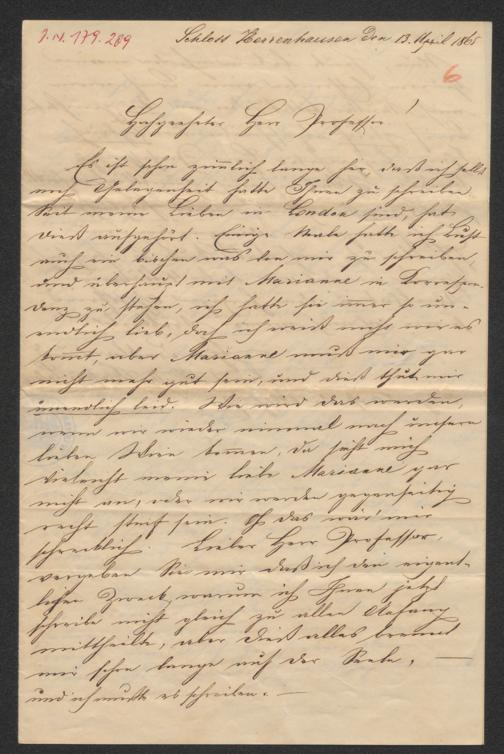 I. N. 179.289
Schloss Herrenhausen den 13. April 1865
6
Hochgeehrter Herr Professor!
Es ist schon ziemlich lange her, daß ich selbst
noch Gelegenheit hatte Ihnen zu schreiben
Seit meine Lieben in London sind, hat
dieß aufgehört. Einige Male hatte ich Lust
auch ein bischen was von mir zu schreiben,
und überhaupt mit Marianne in Korrespon-
denz zu stehen, ich hatte sie immer so un-
endlich lieb, doch ich weiß nicht wie es
kommt, aber Marianne muß mir gar
nicht mehr gut sein, und dieß thut mir
unendlich leid. Wie wird das werden,
wenn wir wieder einmal nach unsern
lieben Wien kommen, da sieht mich
vieleicht meine liebe Marianne gar
nicht an, oder wir werden gegenseitig
recht steif sein. O das wär' mir
schrecklich. Lieber Herr Professor,
vergeben Sie mir daß ich den eigent-
lichen Zweck, warum ich Ihnen jetzt
schreibe nicht gleich zu allen Anfang
mittheilte, aber dieß alles brennt
mir schon lange auf der Seele, —
und ich mußte es schreiben. —